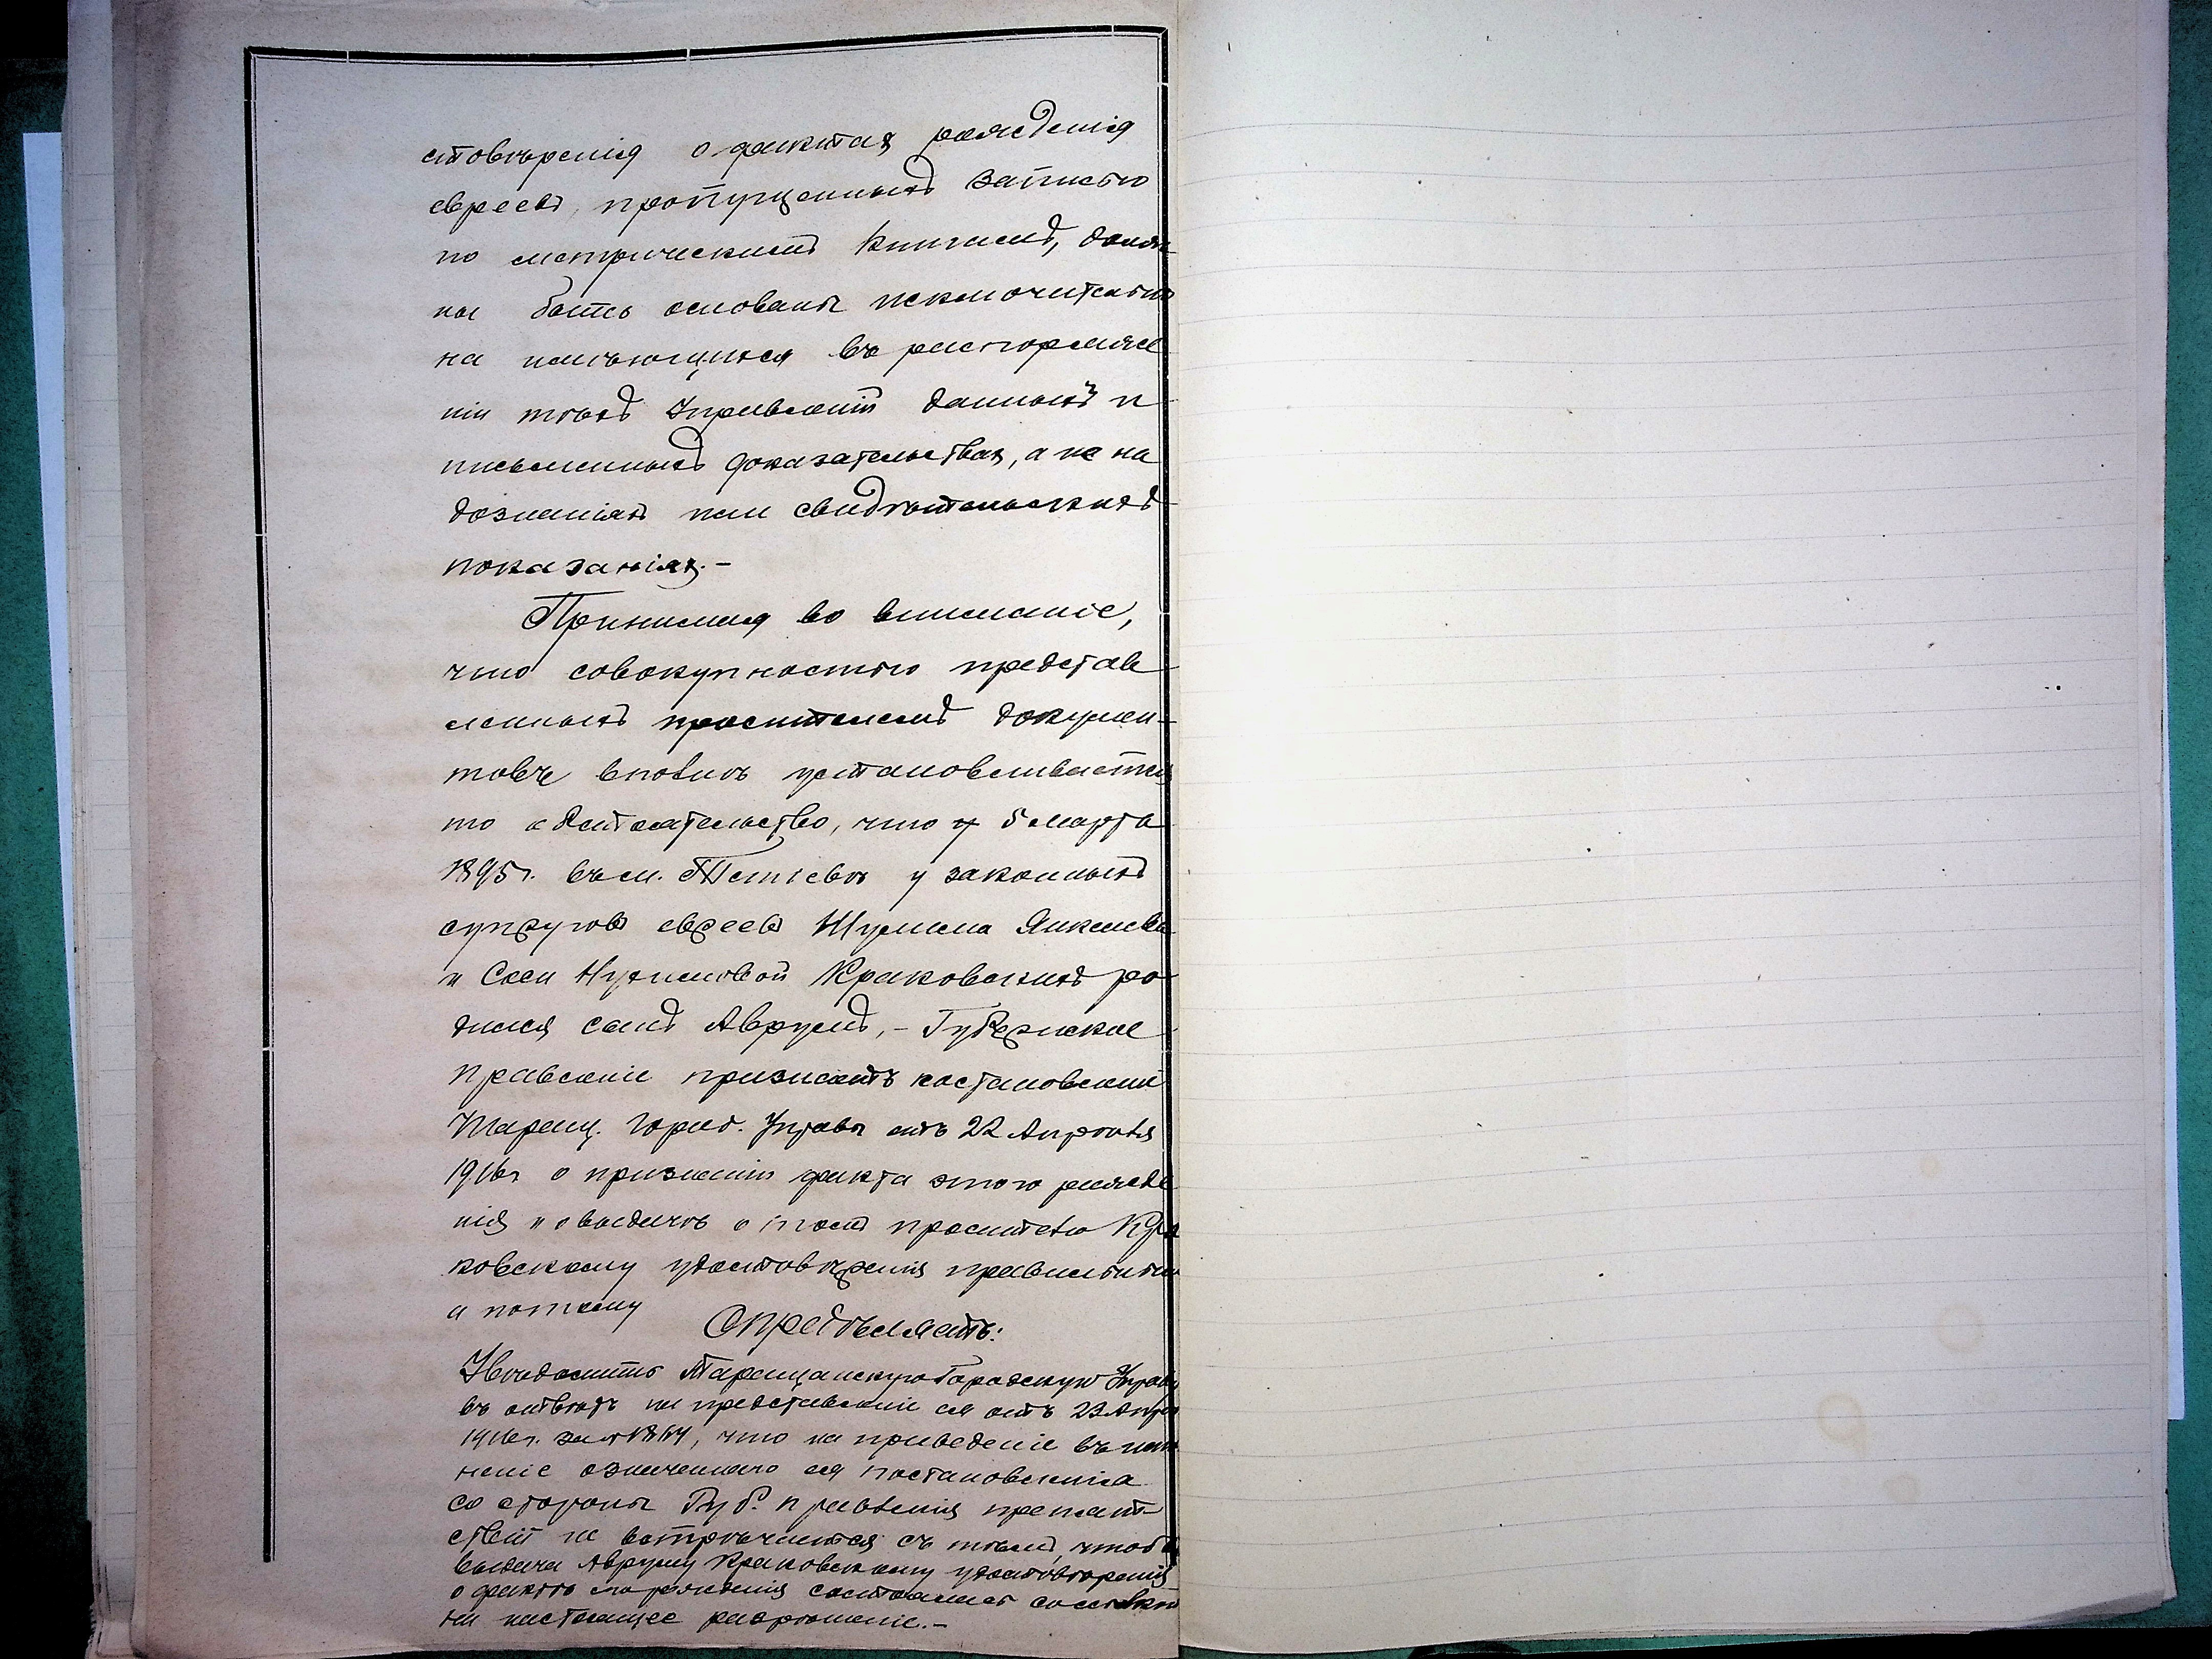 стовѣренія о фактах рожденія
евреевъ, пропущенныхъ записью
по метрическимъ книгамъ, долж-
ны быть основаны исключительно
на имѣющихся въ распоряже
ніи тѣхъ Управленій данныхъ и
письменныхъ доказательствах, а не на
дознаніяхъ или свидѣтельскихъ
показаніях.-
Принимая во вниманіе,
что совокупностью представ
ленныхъ просителемъ докумен-
товъ вполнѣ устанавливается
то обстоятельство, что 5 марта
1895г. въ м. Тетіевѣ у законныхъ
супруговъ евреевъ Шулима Янкелева
и Соси Краковскихъ ро
дился сынъ Аврумъ,- Губернское
Правленіе признаетъ постановленіе
Таращ. Город. Управы отъ 22 Апрѣля
1916г о признаніи факта этого рожде
нія и о выдачѣ о томъ просителю Кра
ковскому удостовѣренія правильнымъ
а потому
Опредѣляетъ:
Увѣдомить Таращанскую Городскую Управу
въ отвѣтъ на представленіе ея отъ 23 Апрѣ
1916г. за № 1814, что на приведеніе въ испол
неніе означеннаго ея постановленія
со стороны Губ. Правленія препят-
ствій не встрѣчается съ тѣмъ, чтобы
выдача Авруму Краковскому удостовѣренія
о фактѣ его рожденія состоялась со ссылкою
на настоящее разрѣшеніе.-